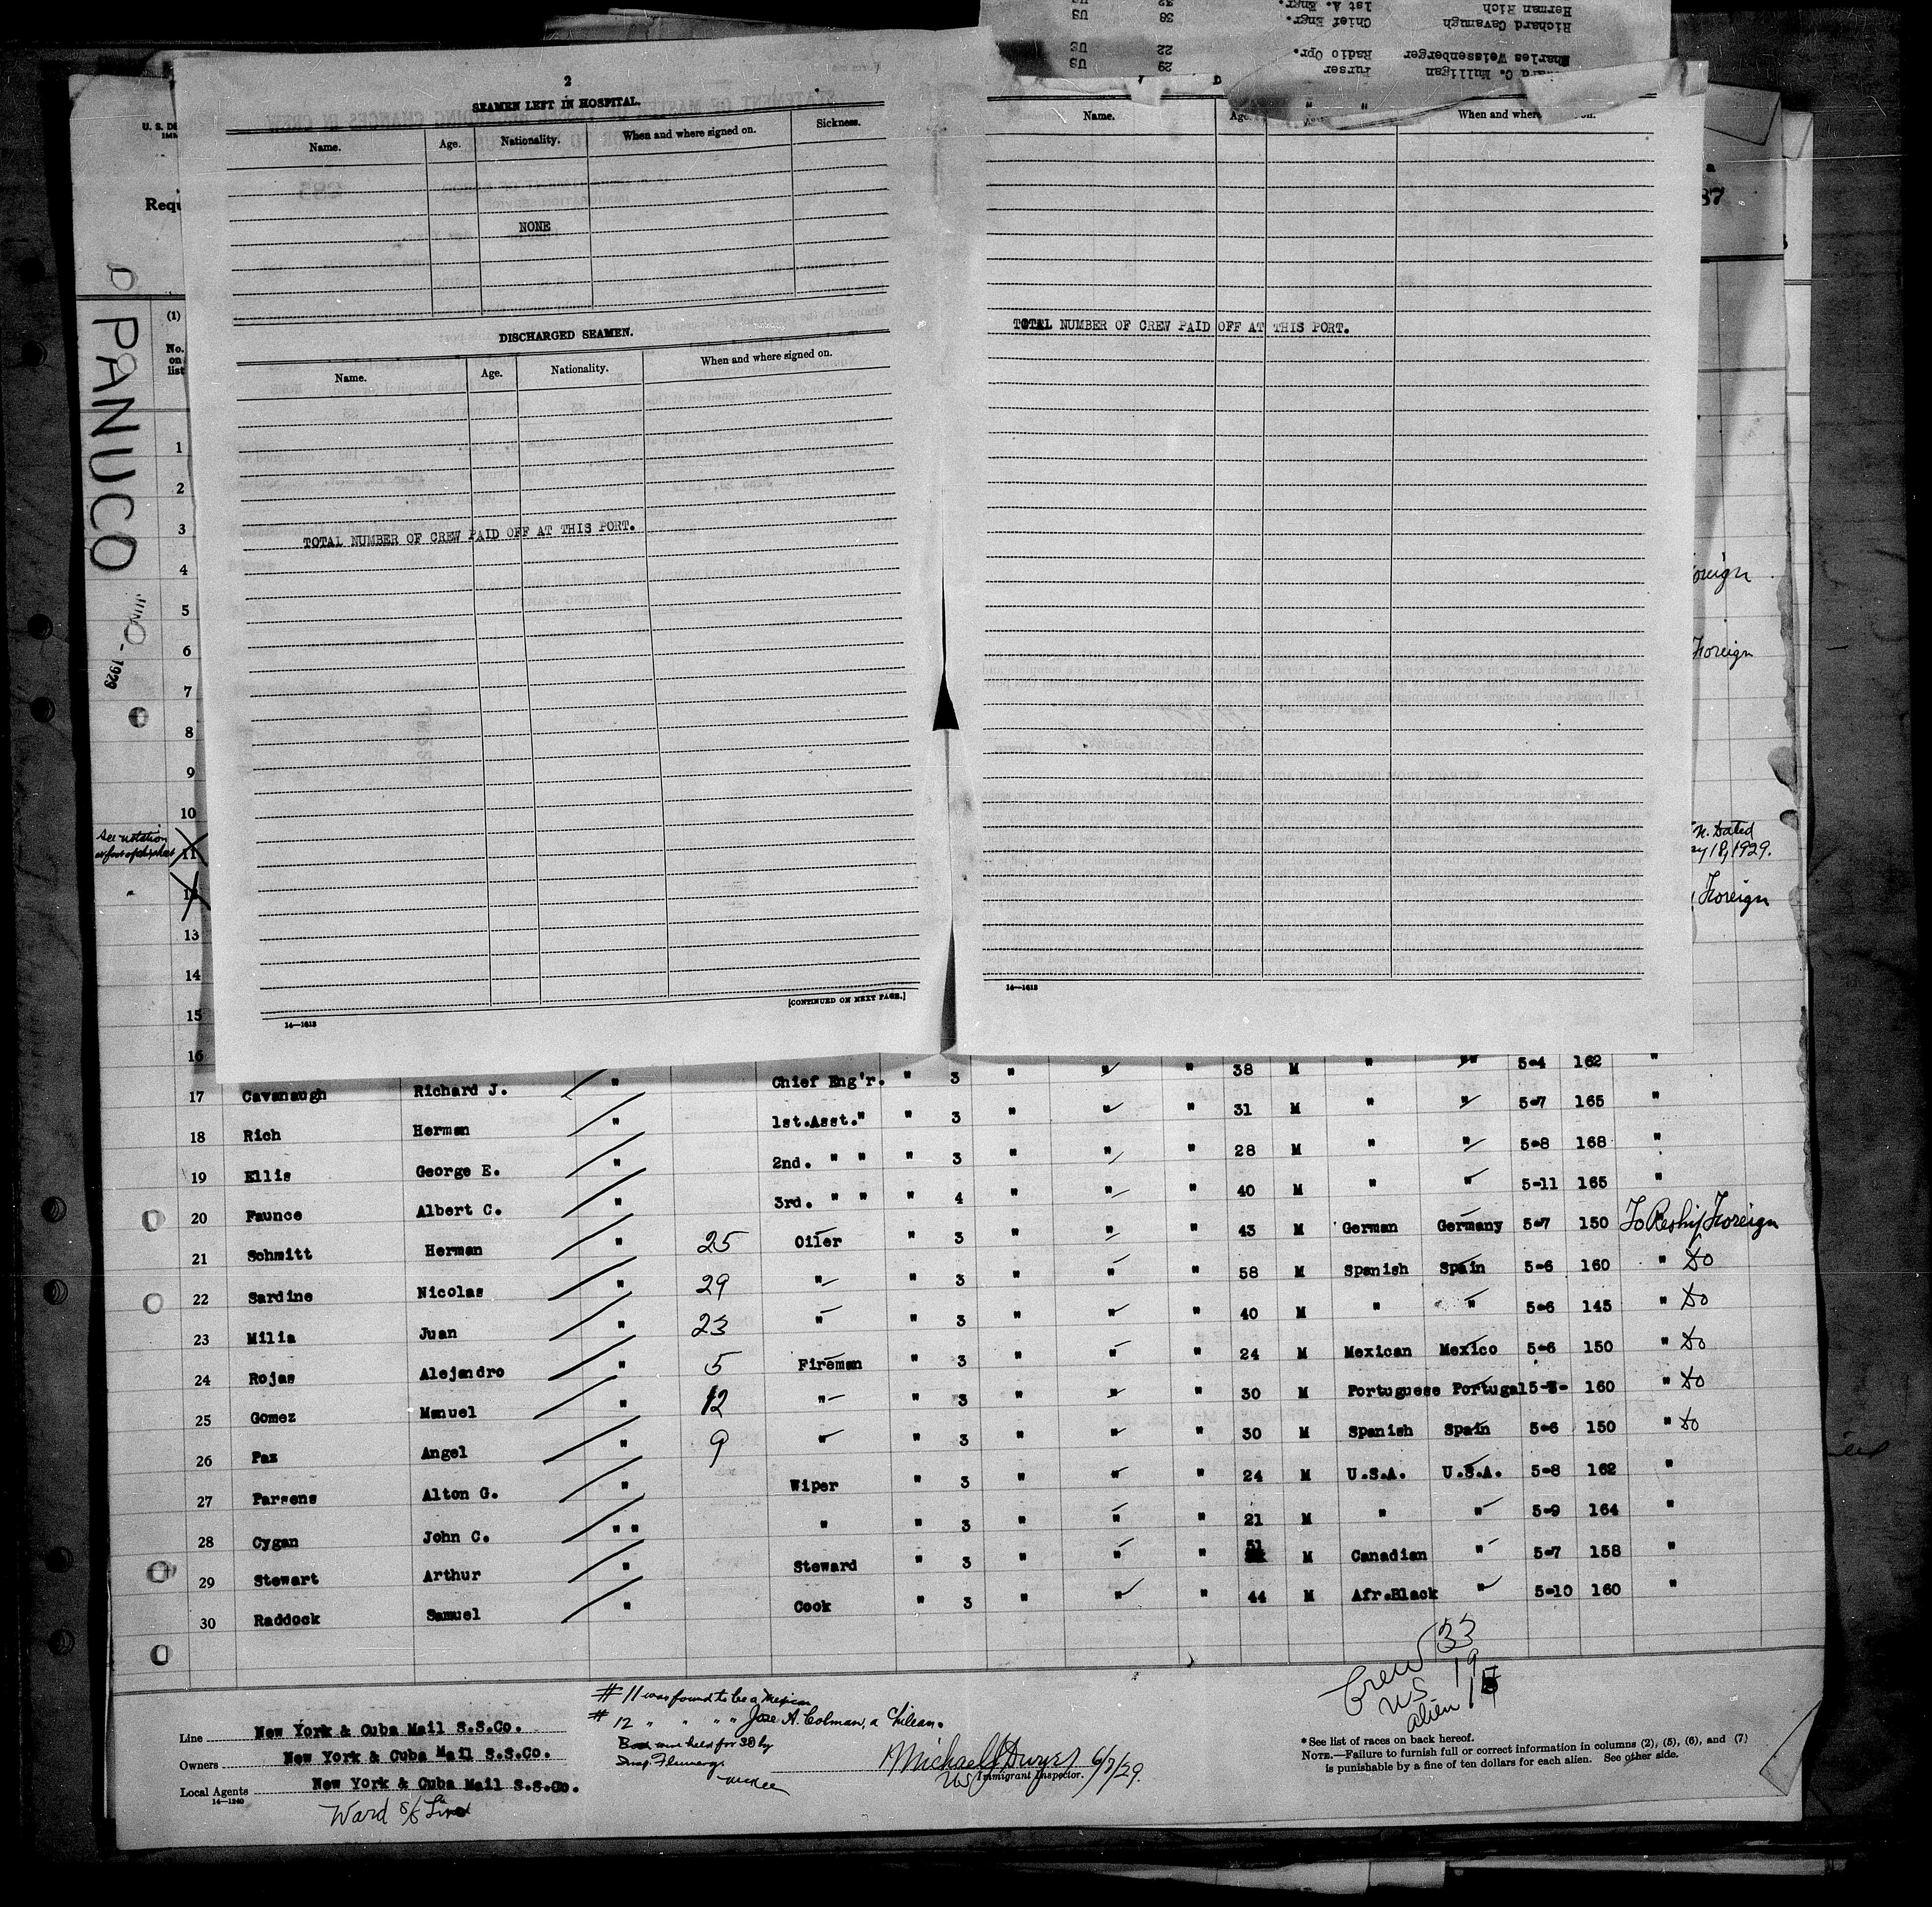 Herman Rich 1st A. Engr. 32 US
Richard Cavanugh Chief Engr. 38 US
Charles Weissenberger Radio Opr. 22 US
C. Mulligan Purser 29 US
2
SEAMEN LEFT IN HOSPITAL.
Name. Age. Nationality. When and where signed on. Sickness.
NONE
DISCHARGED SEAMEN.
Name. Age. Nationality. When and where signed on.
TOTAL NUMBER OF CREW PAID OFF AT THIS PORT.
[CONTINUED ON NEXT PAGE.]
14—1613
Name. Age. When and where
TOTAL NUMBER OF CREW PAID OFF AT THIS PORT.
14—1613
U. S. DE
Requ
87
PANUCO
1929
(1)
No.
on
list
1
2
3
4
5
6
7
8
9
10
See notation
11
12
13
14
15
16
oreign
Foreign
n. Dated
ry 18, 1929.
Foreign
5-4 162 "
17 Cavanaugh Richard J. " Chief Eng'r. " 3 " " " 38 M " "
18 Rich Herman " 1st.Asst." " 3 " " " 31 M " " 5-7 165 "
19 Ellis George E. " 2nd. " " " 3 " " " 28 M " " 5-8 168 "
20 Faunce Albert C. " 3rd. " " " 4 " " " 40 M " " 5-11 165 "
21 Schmitt Herman " 25 Oiler " 3 " " " 43 M German Germany 5-7 150 To Reship Foreign
22 Sardine Nicolas " 29 " " 3 " " " 58 M Spanish Spain 5-6 160 " Do
23 Milia Juan " 23 " " 3 " " " 40 M " " 5-6 145 " Do
24 Rojas Alejandro " 5 Fireman " 3 " " " 24 M Mexican Mexico 5-6 150 " Do
25 Gomez Manuel " 12 " " 3 " " " 30 M Portuguese Portugal 5- 160 " Do
26 Paz Angel " 9 " " 3 " " " 30 M Spanish Spain 5-6 150 " Do
27 Parsens Alton G. " Wiper " 3 " " " 24 M U.S.A. U.S.A. 5-8 162 "
28 Cygan John C. " " " " 3 " " " 21 M " " 5-9 164 "
29 Stewart Arthur " Steward " 3 " " " 51 M Canadian " 5-7 158 "
30 Raddock Samuel " Cook " 3 " " " 44 M Afr.Black " 5-10 160 "
Crew 33
US 19
alien 14
# 11 was found to be a Mexican
# 12 " " " " Jose A. Colman, a Chilean.
Both were held for 30 by
Insp. Flannery.
Line New York & Cuba Mail S.S.Co.
Owners New York & Cuba Mail S.S.Co.
Local Agents New York & Cuba Mail S.S.Co.
14—1240
Ward S/S Line
Michael J Dwyer 6/7/29.
US Immigrant Inspector.
* See list of races on back hereof.
NOTE.—Failure to furnish full or correct information in columns (2), (5), (6), and (7)
is punishable by a fine of ten dollars for each alien. See other side.